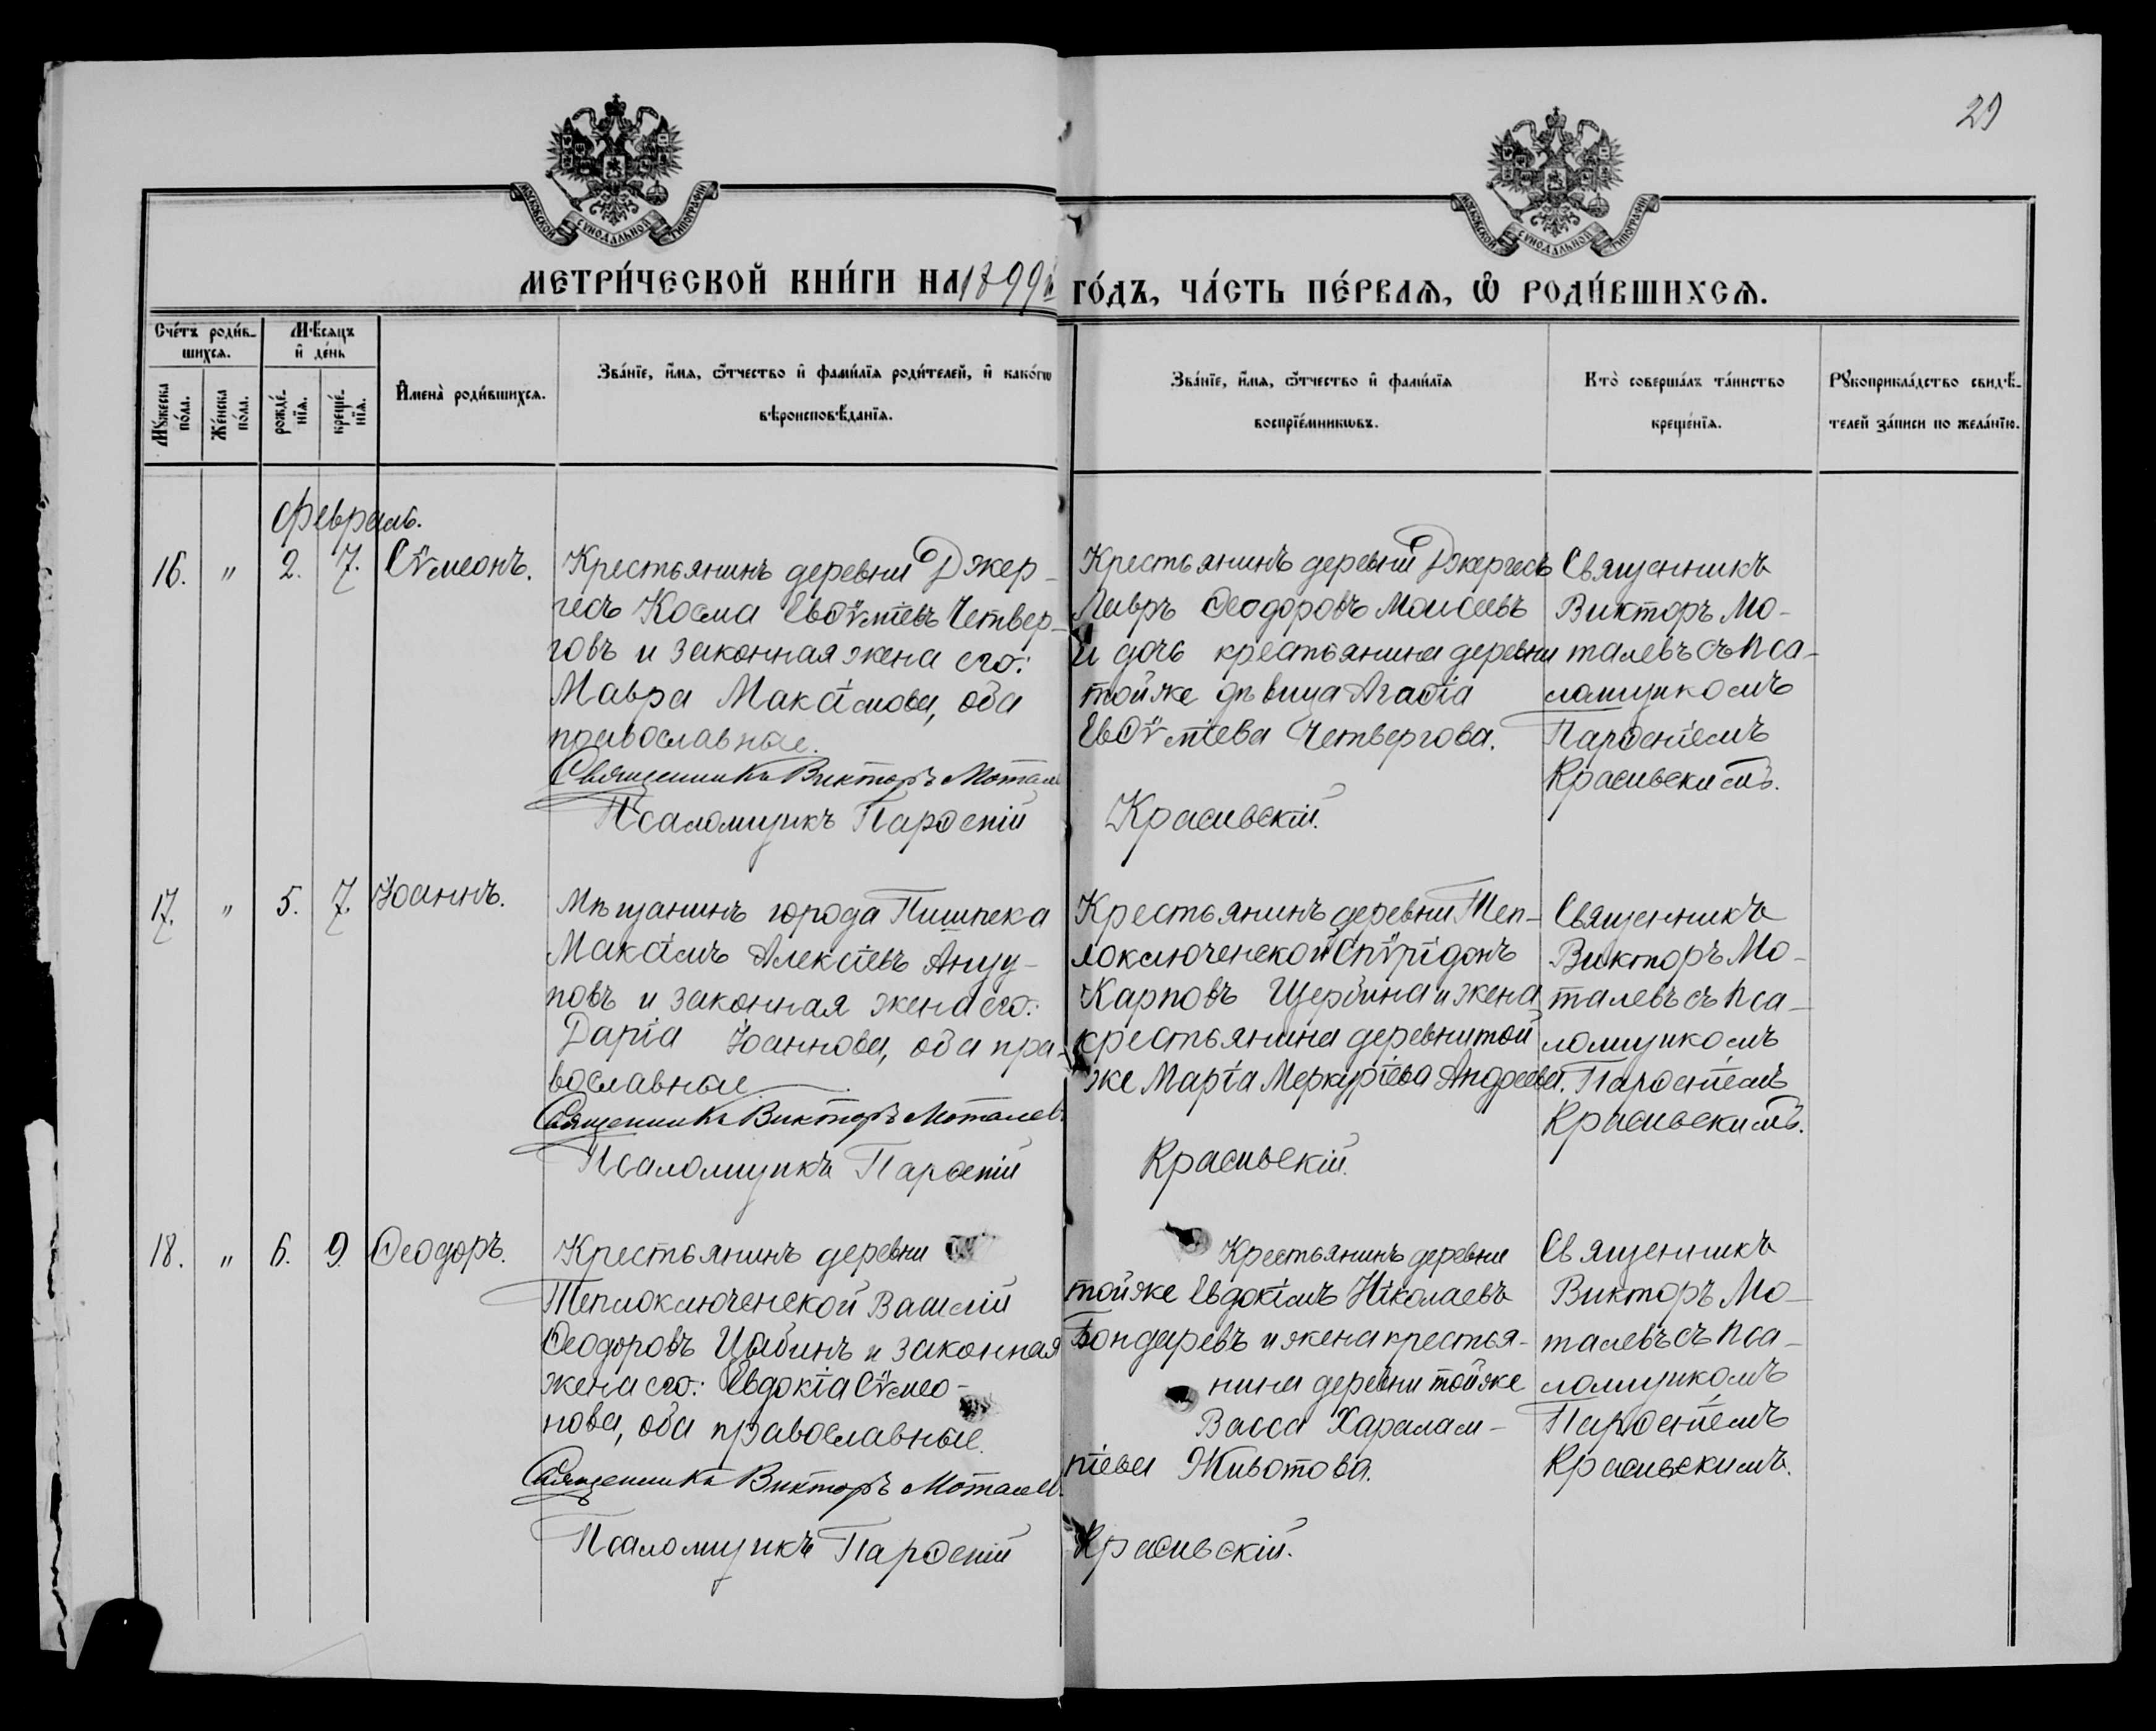 29
МОСКОВСКОЙ СѴНОДАЛЬНОЙ ТИПОГРАФІИ
МОСКОВСКОЙ СѴНОДАЛЬНОЙ ТИПОГРАФІИ
МЕТРИ́ЧЕСКОЙ КНИ́ГИ НА 1899й ГО́ДЪ, ЧА́СТЬ ПЕ́РВАѦ, Ѡ҆ РОДИ́ВШИХСѦ.
Сче́тъ роди́в-
шихсѧ.
Мꙋ́жеска по́ла.
Же́нска по́ла.
Мѣ́сѧцъ
и҆ де́нь
рожде́-
нїѧ.
креще́-
нїѧ.
И҆мена̀ роди́вшихсѧ.
Зва́нїе, и҆́мѧ, ѻ҆́тчество и҆ фами́лїѧ роди́телей, и҆ како́гѡ
вѣроисповѣ́данїѧ.
Зва́нїе, и҆́мѧ, ѻ҆́тчество и҆ фами́лїѧ
воспрїе́мникѡвъ.
Кто̀ соверша́лъ та́инство
креще́нїѧ.
Рꙋкоприкла́дство свидѣ́-
телей за́писи по жела́нїю.
Февраль.
16. " 2. 7. Сѵмеонъ.
Крестьянинъ деревни Джер-
гесъ Косма Евѳѵміевъ Четвер-
говъ и законная жена его:
Мавра Максімова, оба
православные.
Священникъ Викторъ Моталевъ
Псаломщикъ Парѳеній Красивскій.
Крестьянинъ деревни Джергесъ
Лавръ Ѳеодоровъ Моисеевъ
и дочь крестьянина деревни
тойже дѣвица Агаѳіа
Евѳѵміева Четвергова.
Священникъ
Викторъ Мо-
талевъ съ пса-
ломщикомъ
Парѳеніемъ
Красивскимъ.
17. " 5. 7. Іоаннъ.
Мѣщанинъ города Пишпека
Максімъ Алексіевъ Ануу-
повъ и законная жена его:
Даріа Іоаннова, оба пра-
вославные.
Священникъ Викторъ Моталевъ
Псаломщикъ Парѳеній Красивскій.
Крестьянинъ деревни Теп-
лоключенской Спѵрідонъ
Карповъ Щербина и жена
крестьянина деревни той
же Маріа Меркуріева Андреева.
Священникъ
Викторъ Мо-
талевъ съ пса-
ломщикомъ
Парѳеніемъ
Красивскимъ.
18. " 6. 9. Ѳеодоръ.
Крестьянинъ деревни
Теплоключенской Василій
Ѳеодоровъ Цыбинъ и законная
жена его: Евдокіа Сѵмео-
нова, оба православные.
Священникъ Викторъ Моталевъ
Псаломщикъ Парѳеній Красивскій.
Крестьянинъ деревни
тойже Евдокімъ Ніколаевъ
Бондаревъ и жена крестья-
нина деревни тойже
Васса Харалам-
піева Животова.
Священникъ
Викторъ Мо-
талевъ съ пса-
ломщикомъ
Парѳеніемъ
Красивскимъ.